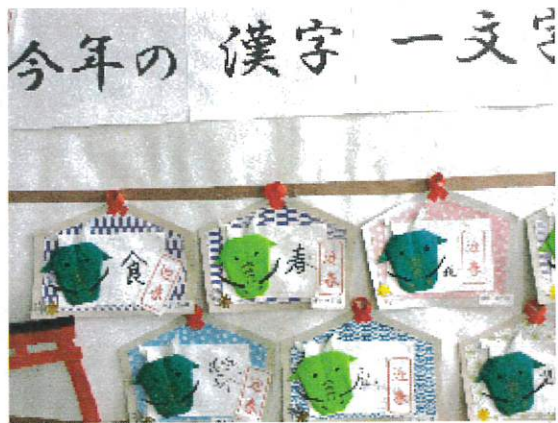 今年の漢字一文字
食 迎春
春 迎春
迎春
迎春
迎春